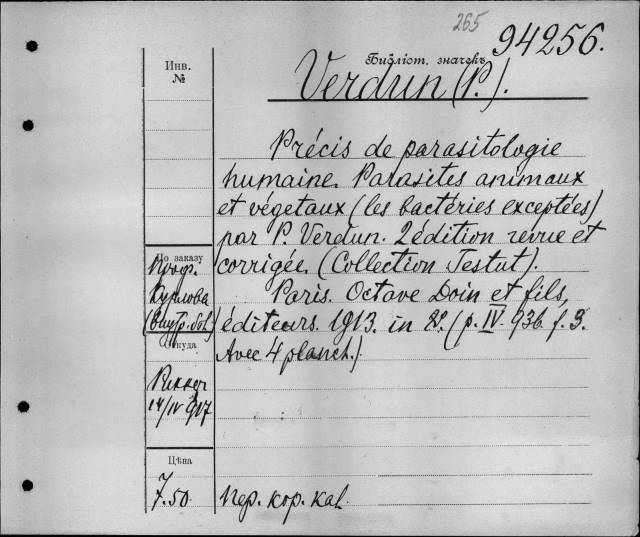 265
94256.
Библіот. значекъ
Verdun (P.).
Инв.
№
Précis de parasitologie
humaine. Parasites animaux
et végetaux (les bactéries exceptées)
par P. Verdun. 2 édition revue et
corrigée. (Collection Testut).
Paris. Octave Doin et fils,
éditeurs. 1913. in 8º. (p. IV. 936. f. 3.
Avec 4 planch.).
По заказу
Проф.
Курлова
(Внутр. бол.)
Откуда
Риккеръ
14/IV 917
Цѣна
7.50
Пер. кор. кал.